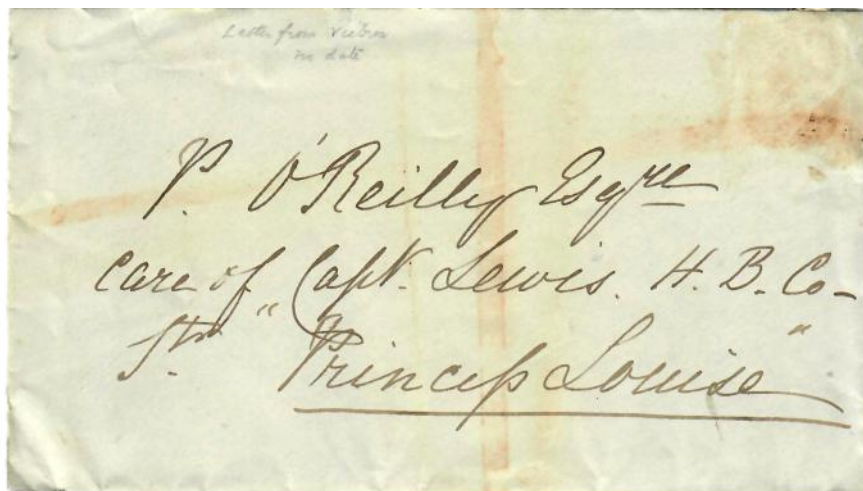 Letter from Victoria
no date
P. O'Reilly Esqre
Care of Capt. Lewis. H. B. Co-
Str. "Princess Louise"